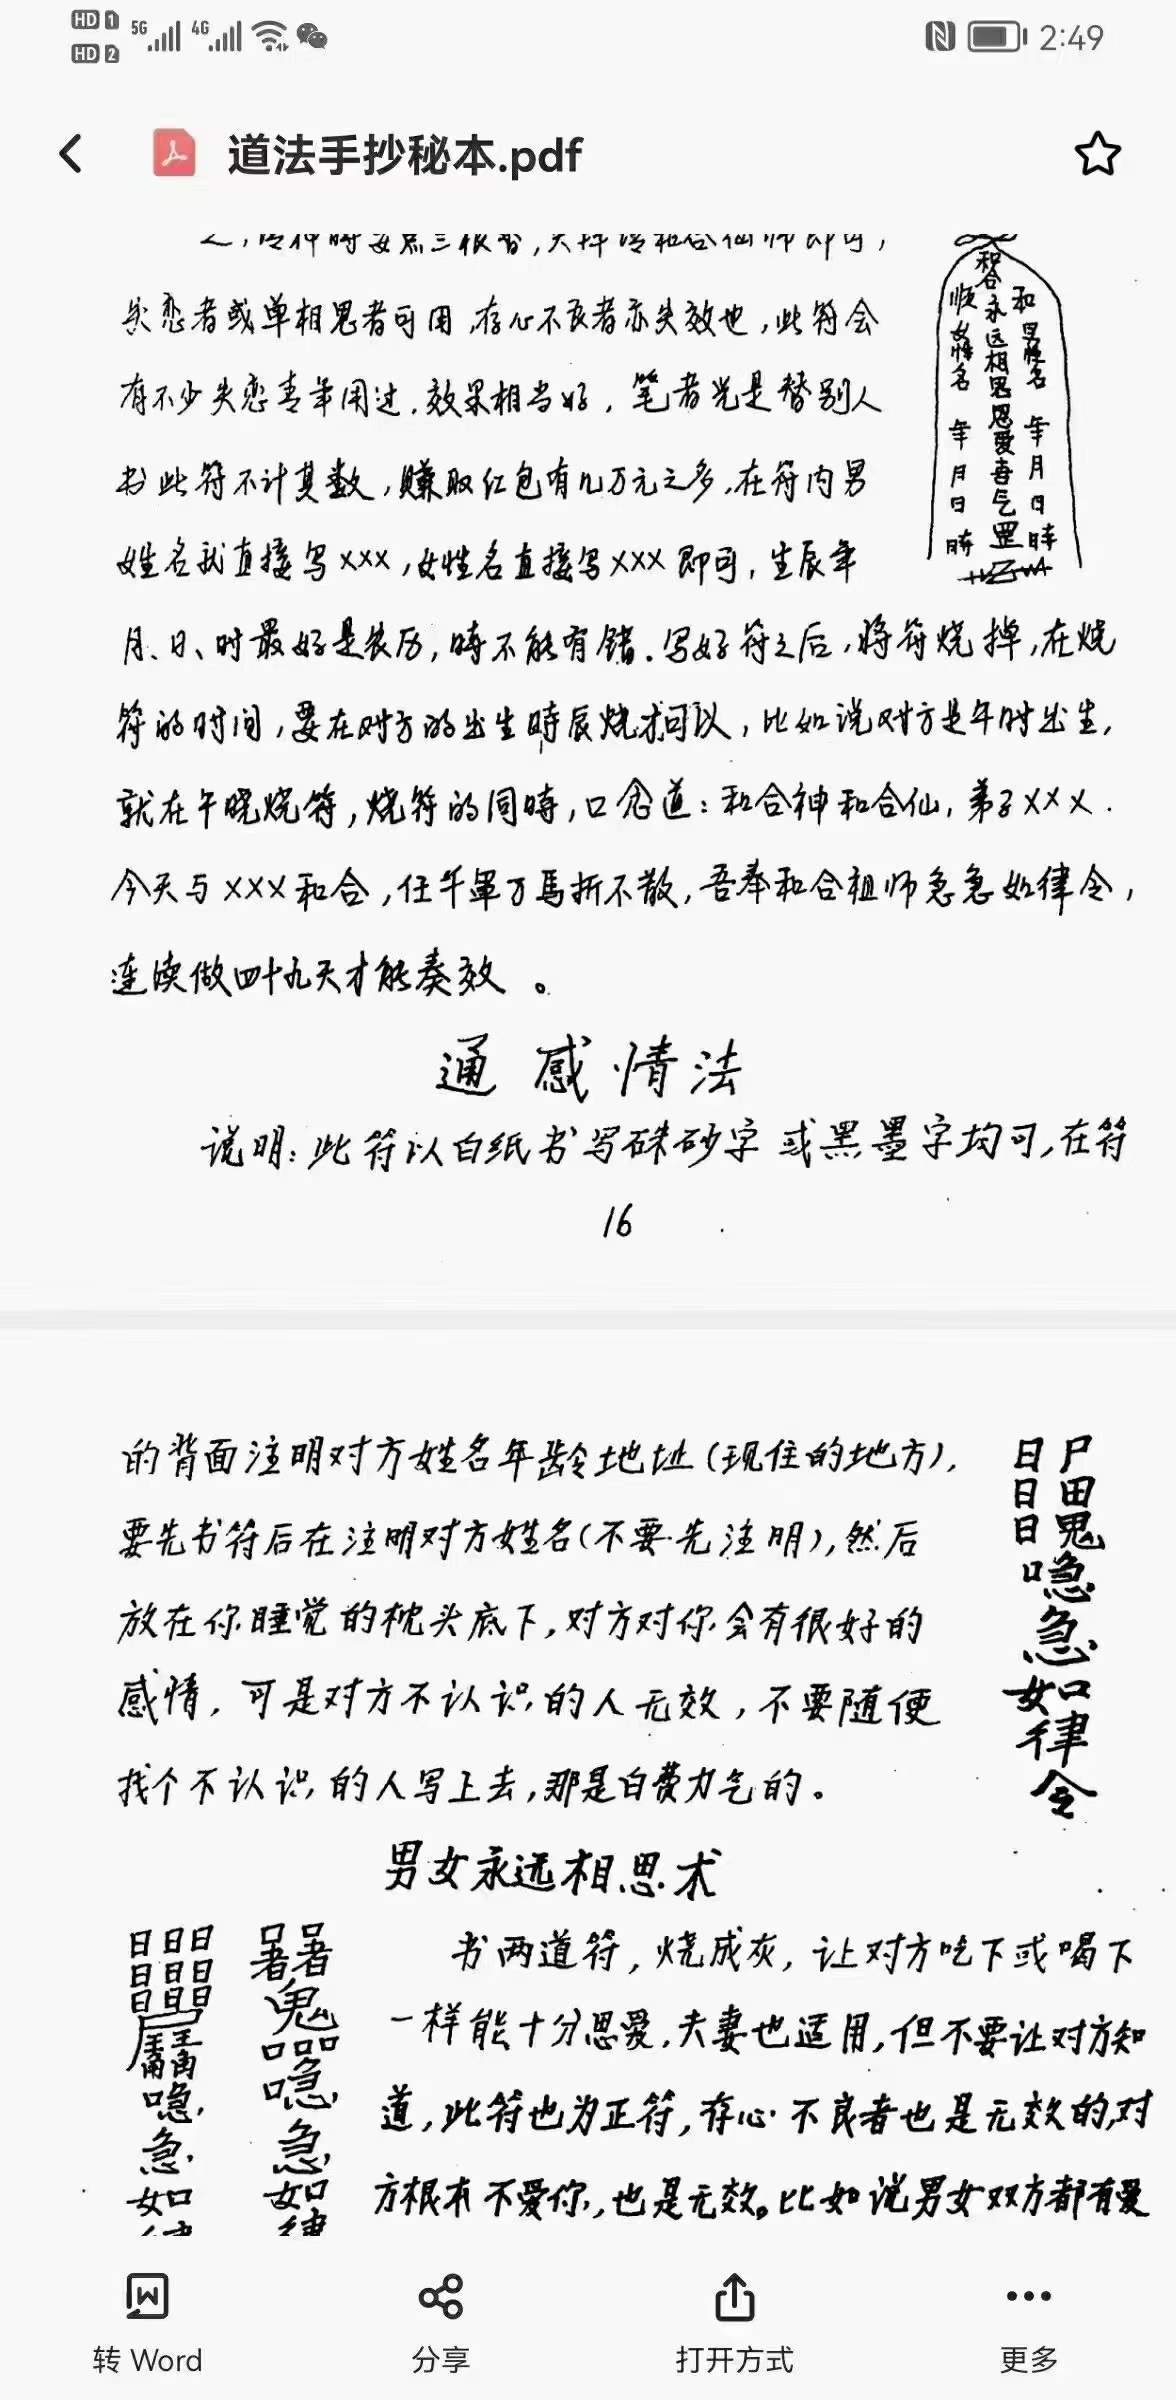 HD 1 5G 4G 2:49
HD 2
道法手抄秘本.pdf
和合永远相思恩爱喜气罡
和男姓名 年月日時
顺女姓名 年月日時
失恋者或单相思者可用,存心不良者亦失效也,此符会
有不少失恋青年用过,效果相当好,笔者光是替别人
书此符不计其数,赚取红包有几万元之多,在符内男
姓名就直接写×××,女性名直接写×××即可,生辰年
月、日、时最好是农历,時不能有错.写好符之后,将符烧掉,在烧
符的时间,要在对方的出生時辰烧才可以,比如说对方是午时出生,
就在午時烧符,烧符的同時,口念道:和合神和合仙,弟子×××.
今天与×××和合,任千軍万馬折不散,吾奉和合祖师急急如律令,
连续做四十九天才能奏效。
通感情法
说明:此符以白纸书写硃砂字或黑墨字均可,在符
16
的背面注明对方姓名年龄地址(现住的地方),
要先书符后在注明对方姓名(不要先注明),然后
放在你睡觉的枕头底下,对方对你会有很好的
感情,可是对方不认识的人无效,不要随便
找个不认识的人写上去,那是白费力气的。
尸田鬼
日日日
喼急如律令
男女永远相思术
书两道符,烧成灰,让对方吃下或喝下
一样能十分恩爱,夫妻也适用,但不要让对方知
道,此符也为正符,存心不良者也是无效的,对
方根本不爱你,也是无效。比如说男女双方都有爱
日日日
日日日
日日日
喼急如
鬼
喼急如
转 Word
分享
打开方式
更多